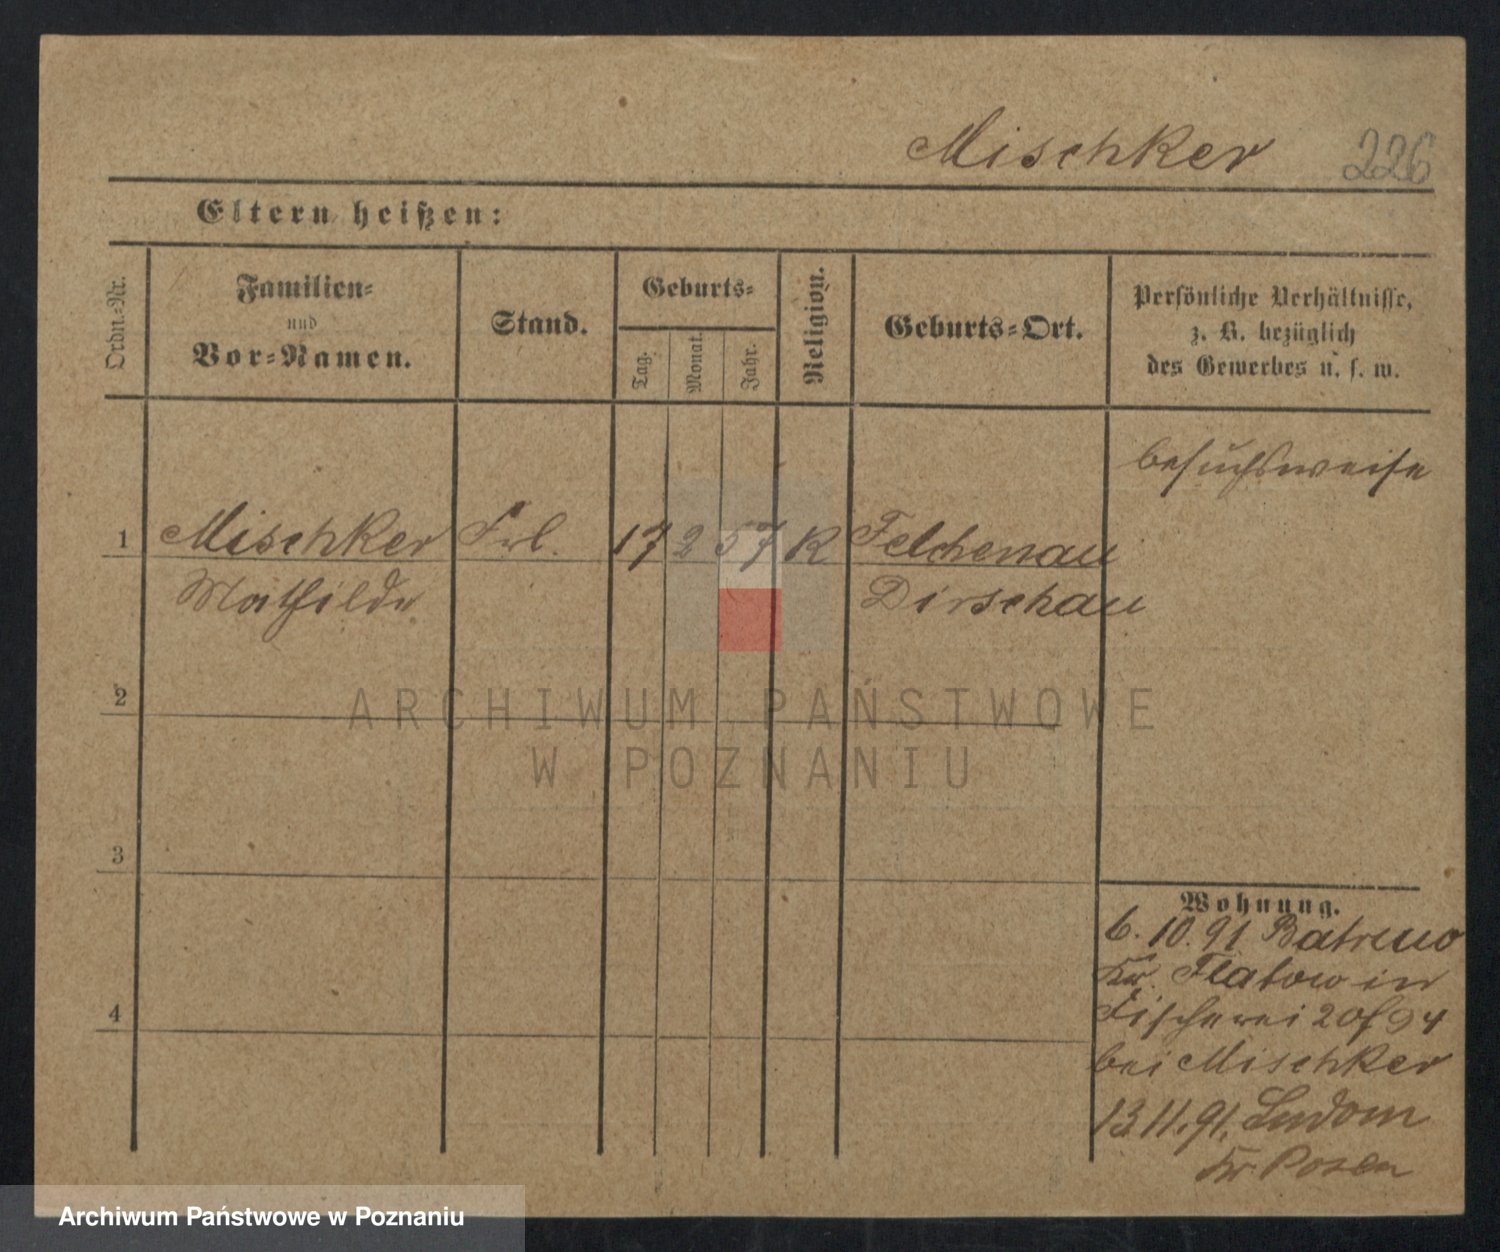 Mischker 226
Eltern heißen:
Ordn.=Nr.
Familien=
und
Vor=Namen.
Stand.
Geburts=
Tag.
Monat.
Jahr.
Religion.
Geburts=Ort.
Persönliche Verhältnisse,
z. B. bezüglich
des Gewerbes u. s. w.
besuchsweise
1 Mischker Frl. 17 2 57 K Felchenau
Mathilde Dirschau
2
3
4
Wohnung.
6. 10. 91
Kr. Flatow in
Fischerei 20 94
bei Mischker
13. 11. 91. Ludom
Kr Posen
ARCHIWUM PAŃSTWOWE
W POZNANIU
Archiwum Państwowe w Poznaniu